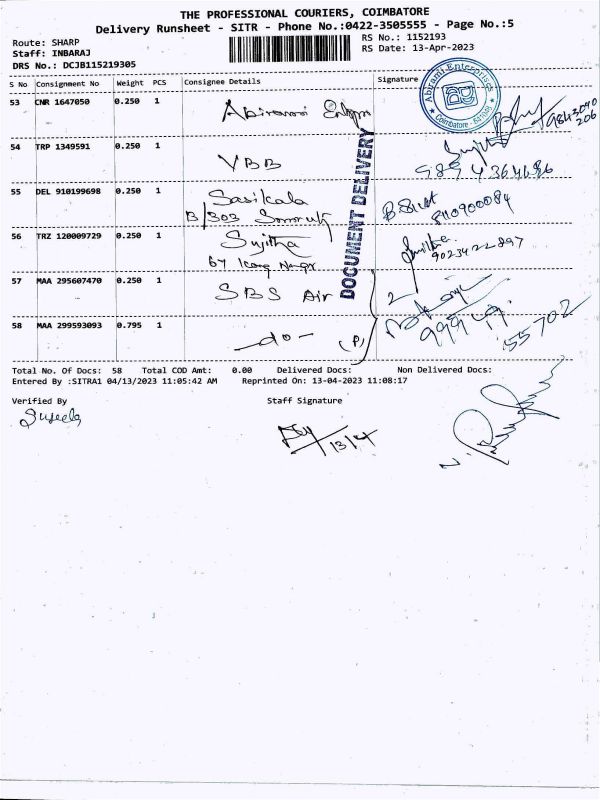 THE PROFESSIONAL COURIERS, COIMBATORE
Delivery Runsheet - SITR - Phone No.:0422-3505555 - Page No.:5
Route: SHARP
RS No.: 1152193
Staff: INBARAJ
RS Date: 13-Apr-2023
DRS No.: DCJB115219305
S No Consignment No Weight PCS Consignee Details Signature
Abirami Enterprises
Coimbatore
53 CNR 1647050 0.250 1 Abirami
54 TRP 1349591 0.250 1 VBB
55 DEL 910199698 0.250 1 Sasikala
B/303
8110900084
56 TRZ 120009729 0.250 1 Sujitha
67 Nagar
DOCUMENT DELIVERY
57 MAA 295607470 0.250 1 SBS Air
58 MAA 299593093 0.795 1 -do- (P)
55702
Total No. Of Docs: 58 Total COD Amt: 0.00 Delivered Docs: Non Delivered Docs:
Entered By :SITRA1 04/13/2023 11:05:42 AM Reprinted On: 13-04-2023 11:08:17
Verified By Staff Signature
13/4